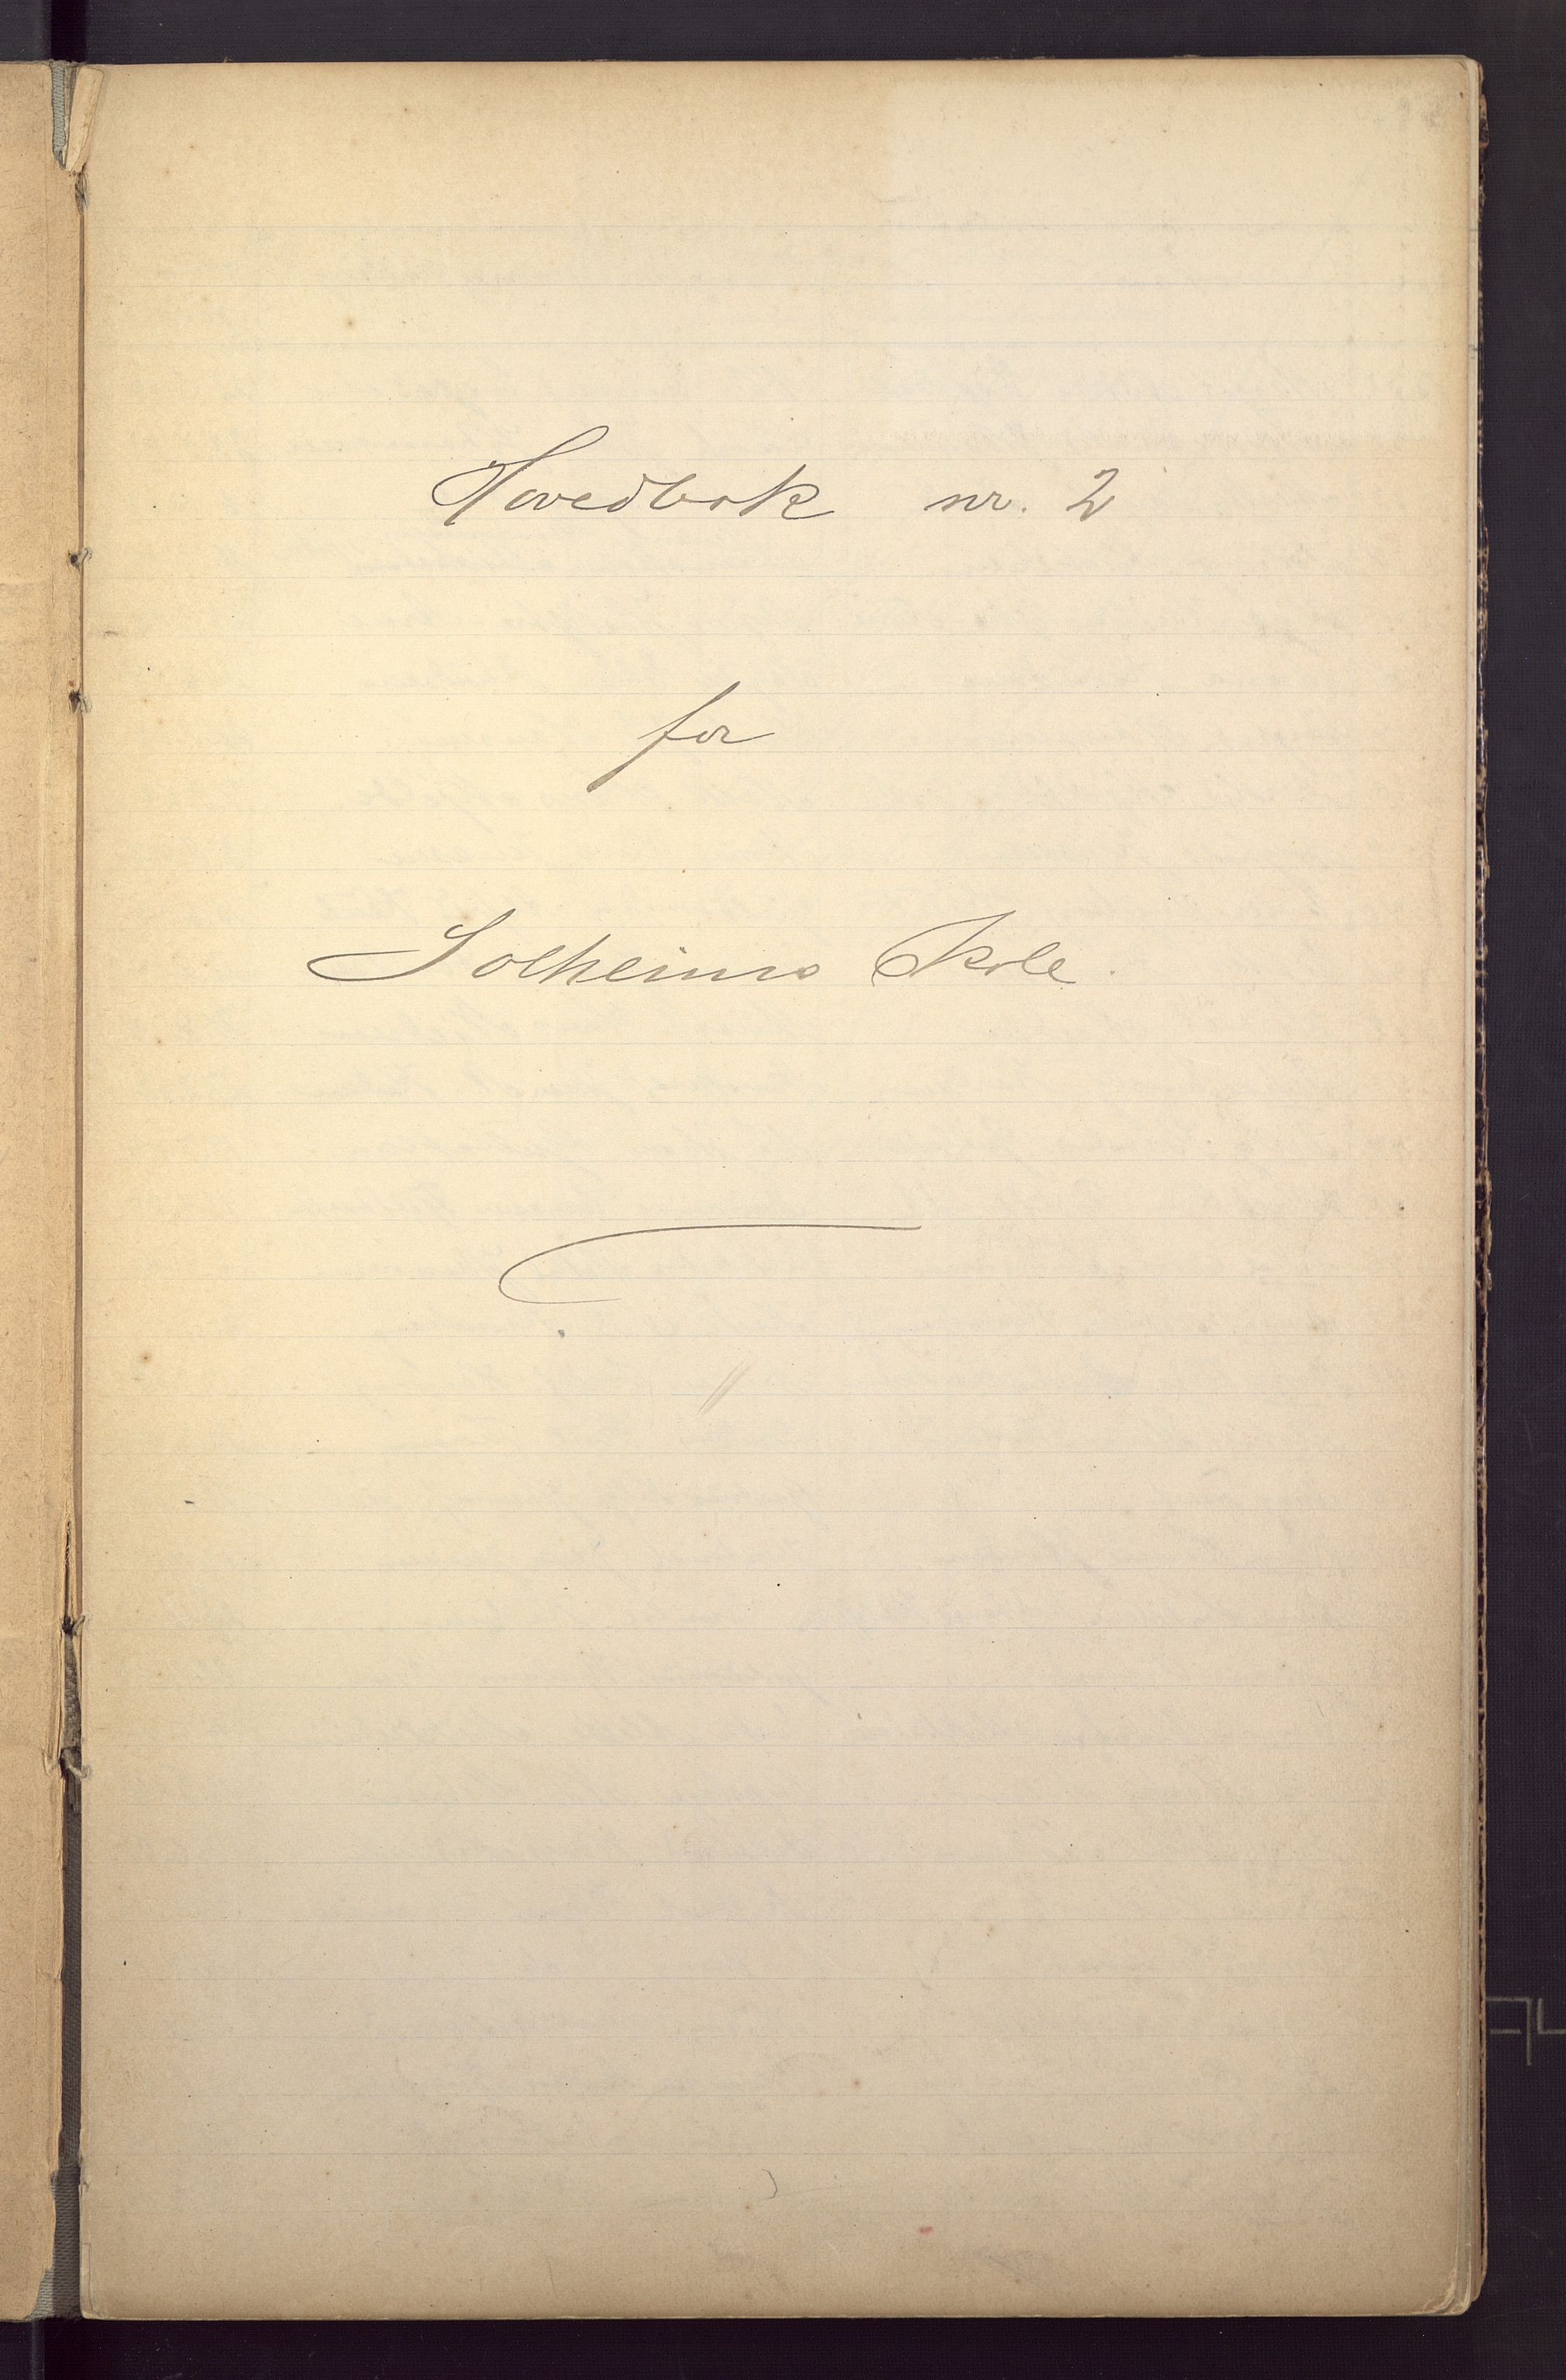 Hovedbok nr. 2
for
Solheims Skole.